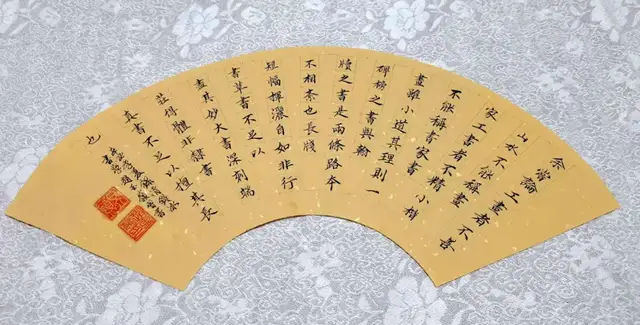 余嘗論工畫者不善
山水不能稱畫
家工書者不精小楷
不能稱書家書
畫雖小道其理則一
碑榜之書與翰
牘之書是兩條路本
不相紊也長牋
短幅揮灑自如非行
書草書不足以
盡其妙大書深刻端
莊得體非隸書
真書不足以擅其長
也